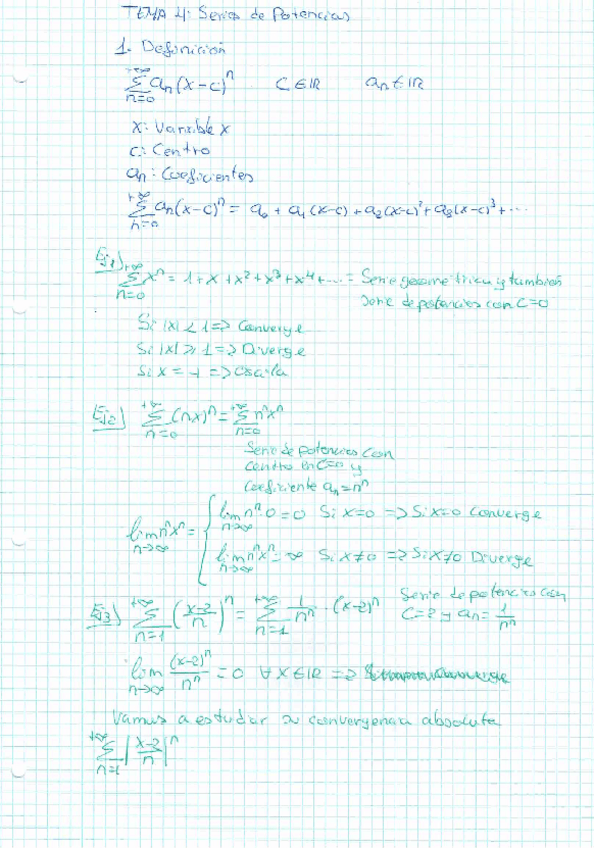 TEMA 4: Series de Potencias
1. Definición
+∞ Σ n=0 an(x-c)^n C∈IR an∈IR
x: Variable x
c: Centro
an: Coeficientes
+∞ Σ n=0 an(x-c)^n = a0 + a1(x-c) + a2(x-c)^2 + a3(x-c)^3 + ...
Ej1) +∞ Σ n=0 x^n = 1 + x + x^2 + x^3 + x^4 + ... = Serie geométrica y también
serie de potencias con C=0
Si |x| < 1 => Converge
Si |x| ≥ 1 => Diverge
Si x = -1 => Oscila
Ej2) +∞ Σ n=0 (nx)^n = +∞ Σ n=0 n^n x^n
Serie de potencias con
centro en C=0 y
coeficiente an = n^n
lim n→∞ n^n x^n = {
lim n→∞ n^n 0 = 0 Si x=0 => Si x=0 Converge
lim n→∞ n^n x^n = ∞ Si x≠0 => Si x≠0 Diverge
Ej3) +∞ Σ n=1 (x-2/n)^n = +∞ Σ n=1 1/n^n · (x-2)^n
Serie de potencias con
C=2 y an = 1/n^n
lim n→∞ (x-2)^n/n^n = 0 ∀x∈IR =>
Vamos a estudar su convergencia absoluta
+∞ Σ n=1 |x-2/n|^n